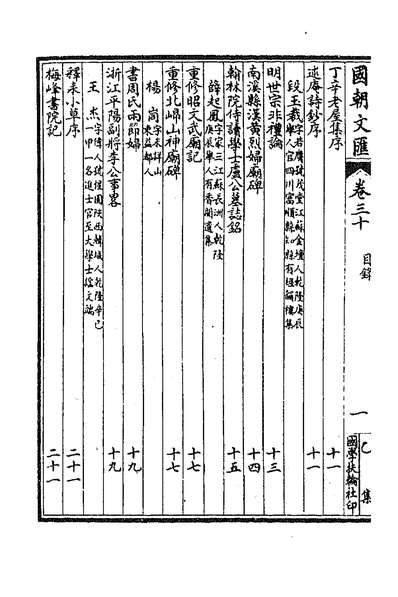 國朝文匯 卷三十 目錄 一 乙集 國學扶輪社印
丁辛老屋集序 十一
述庵詩鈔序 十一
段玉裁 字若膺號茂堂江蘇金壇人乾隆庚辰舉人官四川富順縣知縣有經韻樓集
明世宗非禮論 十三
南溪縣漢黃烈婦廟碑 十四
翰林院侍讀學士盧公墓誌銘 十五
薛起鳳 字家三江蘇長洲人乾隆庚辰舉人有香聞遺集
重修昭文武廟記 十七
重修北崿山神廟碑 十七
楊峒 字書巖山東益都人
書周氏兩節婦 十九
浙江平陽副將李公事畧 十九
王杰 字偉人號惺園陝西韓城人乾隆辛巳一甲一名進士官至大學士諡文端
釋耒小草序 二十一
梅峰書院記 二十一